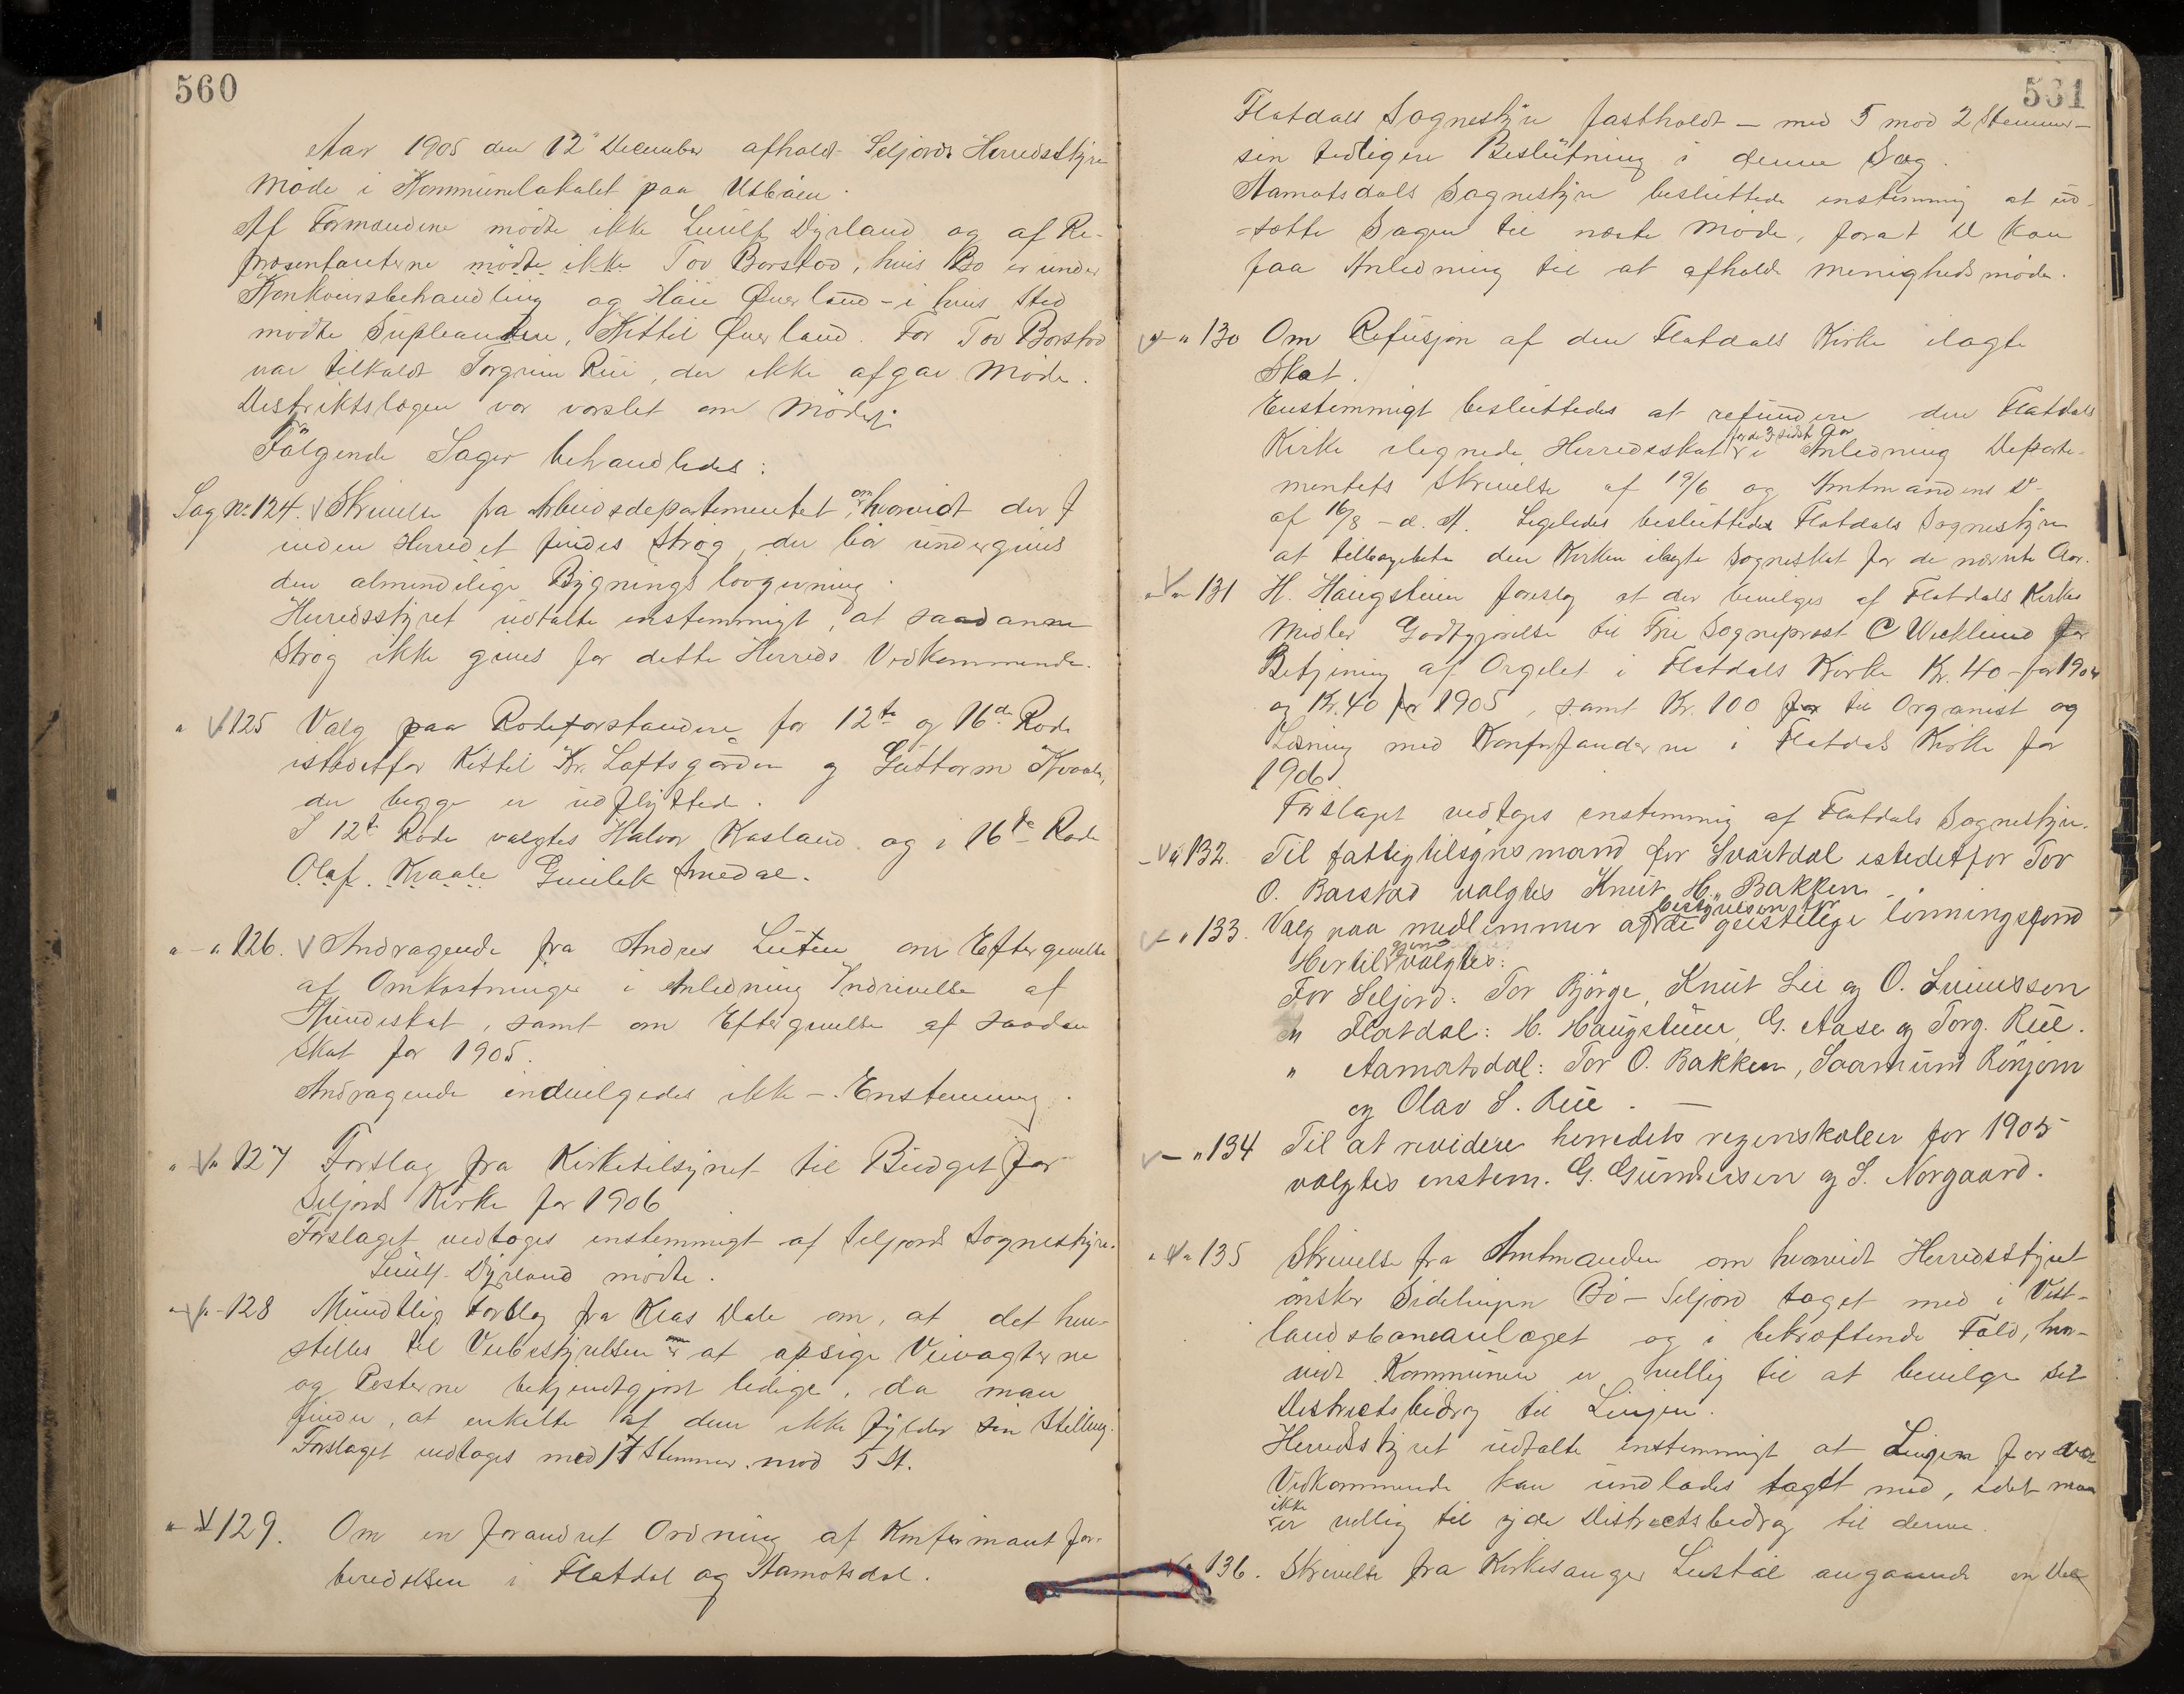 560
Aar 1905 den 12 December afholdt Seljords Herredsstyre
Møde i Kommunelokalet paa Utbøen.
Af Formændene mødte ikke Lüulf Dyrland og af Re-
præsentanterne mødte ikke Tov Borstad, hvis Bo er under
Konkursbehandling og Haü Øverland – i hvis Sted
mødte Supleanten, Kittil Øverland. For Tov Borstad
var tilkaldt Torgrim Rüi, der ikke afgav Møde.
Distriktslægen var varslet om Mødet.
Følgende Sager behandledes:
Sag No 124. Skrivelse fra Arbeidsdepartementet om hvorvidt der
inden Herredet findes Strøg, der bør undergives
den almindelige Bygningslovgivning.
Herredsstyret udtalte enstemmigt, at saadanne
Strøg ikke gives for dette Herreds Vedkommende.
" 125 Valg paa Rodeforstandere for 12te og 16de Rode
istedetfor Kittil Kr. Loftsgarden og Guttorm Kvaale,
der begge er udflyttede.
I 12te Rode valgtes Halvor Kasland og i 16de Rode
Olaf Kvaale Gunlek Amdal.
" - " 126. Andragende fra Andres Lüten om Eftergivelse
af Omkostninger i Anledning Inddrivelse af
Hundeskat, samt om Eftergivelse af saadan
Skat for 1905.
Andragende indvilgedes ikke – Enstemmig.
" " 127 Forslag fra Kirketilsynet til Budget for
Seljord Kirke for 1906
Forslaget vedtoges enstemmigt af Seljords Sognestyre.
Lüulf Dyrland mødte.
" " - 128 Mundtlig Forslag fra Kras Dale om, at det hen-
stilles til Veibestyrelsen om at opsige Veivagterne
og Posterne bekjendtgjort ledige, da man
finder, at enkelte af dem ikke fylder sin Stilling.
Forslaget vedtoges med 17 Stemmer mod 5 St.
" 129. Om en forandret Ordning af Konfirmantfor-
beredelsen i Flatdal og Aamotsdal.
561
Flatdals Sognestyre fastholdt – med 5 mod 2 Stemmer –
sin tidligere Beslutning i denne Sag.
Aamotsdals Sognestyre besluttede enstemmig at ud-
=sætte Sagen til næste Møde, forat de kan
faa Anledning til at afholde menighedsmøde.
" 130 Om Refusjon af den Flatdals Kirke ilagte
Skat.
Enstemmigt besluttedes at refundere den Flatdals
Kirke ilignede Herredsskat for de 3 sidste Aar i Anledning Departe-
mentets Skrivelse af 19/6 og Amtmandens D-
af 16/8 – d. A. Ligeledes besluttedes Flatdals Sognestyre
at tilbagebetale den Kirken ilagte Sogneskat for de nævnte Aar.
" 131 H. Haugstuen foreslog at der bevilges af Flatdals Kirkes
Midler Godtgjørelse til Frue Sogneprest C Wecklund for
Betjening af Orgelet i Flatdals Kirke Kr. 40 – for 1904
og Kr. 40 for 1905, samt Kr. 100 for til Organist og
Læsning med Konfirmanderne i Flatdals Kirke for
1906.
Forslaget vedtoges enstemmig af Flatdals Sognestyre.
" 132. Til fattigtilsynsmand for Svartdal istedetfor Tov
O. Barstad valgtes Knut H. Bakken.
" 133. Valg paa medlemmer af bestyrelsen for de geistelige lønningsfond
Hertil gjenvalgtes:
For Seljord: Tor Bjørge, Knut Lie og O. Svinusson
" Flatdal: H. Haugstuen, G. Aase og Torg. Rüe.
" Aamotsdal: Tor O. Bakken, Saamund Rönjom
og Olav S. Rüe. –
– " 134 Til at revidere herredets regenskaber for 1905
valgtes enstem. G. Gundersen og S. Norgaard.
" " 135 Skrivelse fra Amtmanden om hvorvidt Herredsstyret
ønsker Sidelinjen Bø – Seljord taget med i Vest-
landsbaneanlæget og i bekræftende Fald, hvor-
vidt Kommunen er villig til at bevilge sit
Distrietsbidrag til Linjen.
Herredsstyret udtalte enstemmigt at Linjen for vor
Vedkommende kan undlades taget med, idet man
ikke er villig til yde Distrietsbidrag til denne.
" 136. Skrivelse fra Kirkesanger Lüstøl angaaende en Del